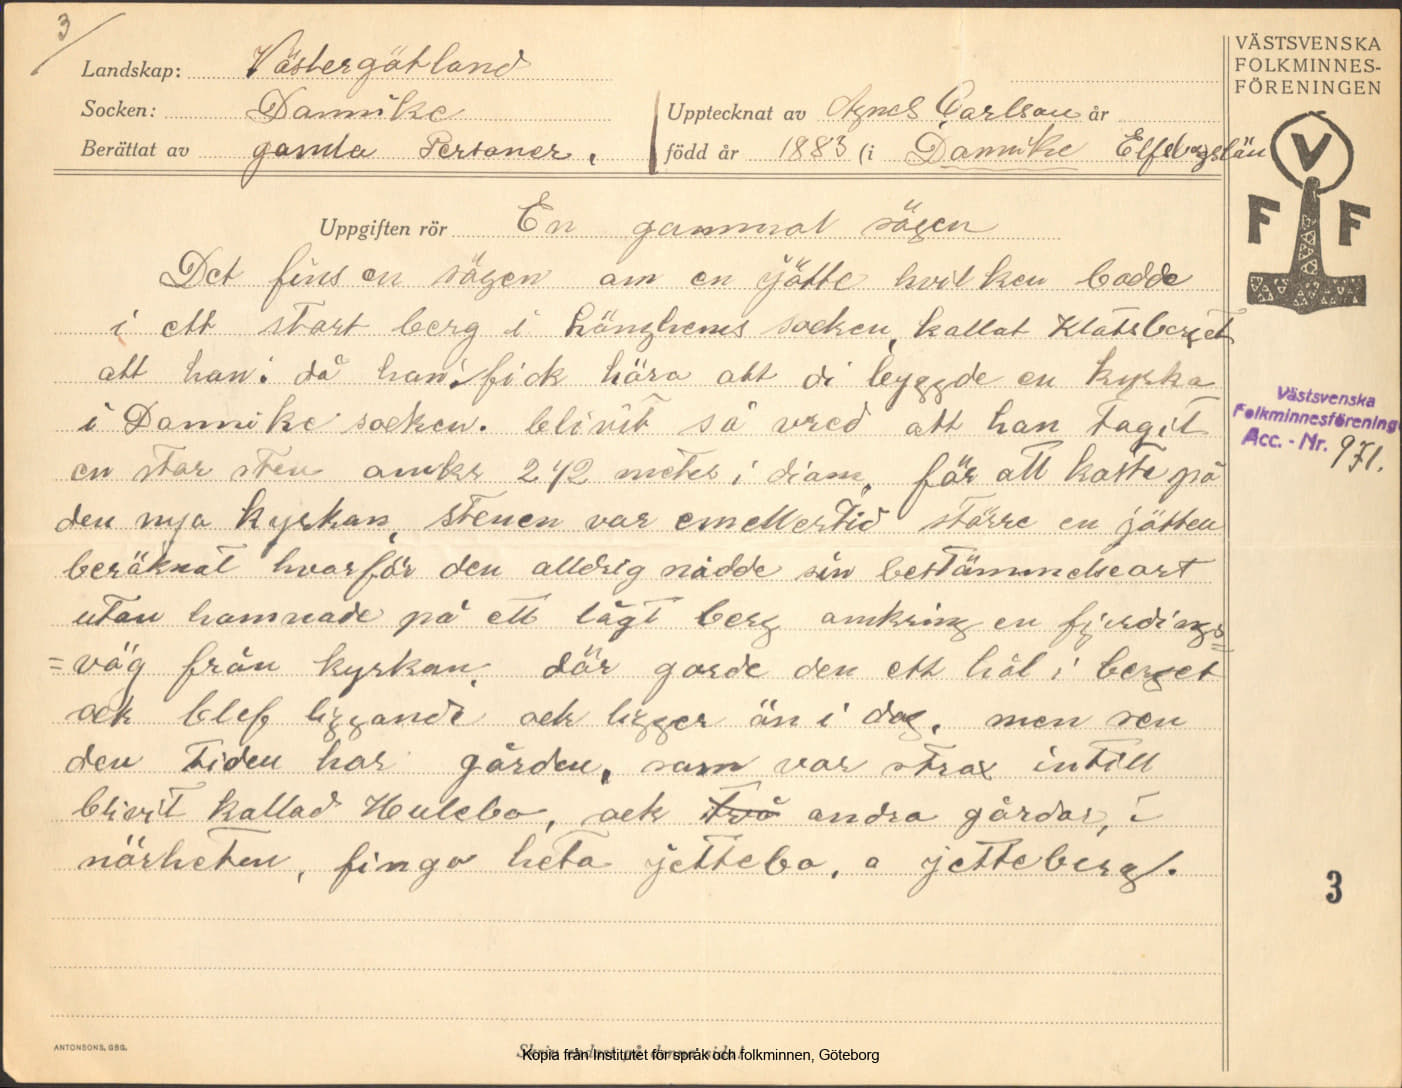 3
Landskap: Västergötland
Socken: Dannike
Berättat av gamla Personer.
Upptecknat av Agnes Carlson år
född år 1883 (i Dannike Elfsborgslän
VÄSTSVENSKA
FOLKMINNES-
FÖRENINGEN
V
F F
Uppgiften rör En gammal sägen
Det fins en sägen om en jätte hvilken bodde
i ett stort berg i hänghems socken, kallat Klätsberget
att han. då han. fick höra att di byggde en kyrka
i Dannike socken. blivit så vred att han tagit
en stor sten omkr 2 1/2 meter i diam, för att kasta på
den nya kyrkan, stenen var emellertid större en jätten
beräknat hvarför den alldrig nådde sin bestämmelseort
utan hamnade på ett lågt berg omkring en fjerdings=
=väg från kyrkan. där gorde den ett hål i berget
ock blef liggande ock ligger än i dag, men sen
den tiden har gården, som var strax intill
blivit kallad Hulebo, ock två andra gårdar, i
närheten, fingo heta jettebo, o jetteberg.
Västsvenska
Folkminnesförening
Acc. - Nr. 971.
3
ANTONSONS, GBG.
Skriv endast på denna sida!
Kopia från Institutet för språk och folkminnen, Göteborg